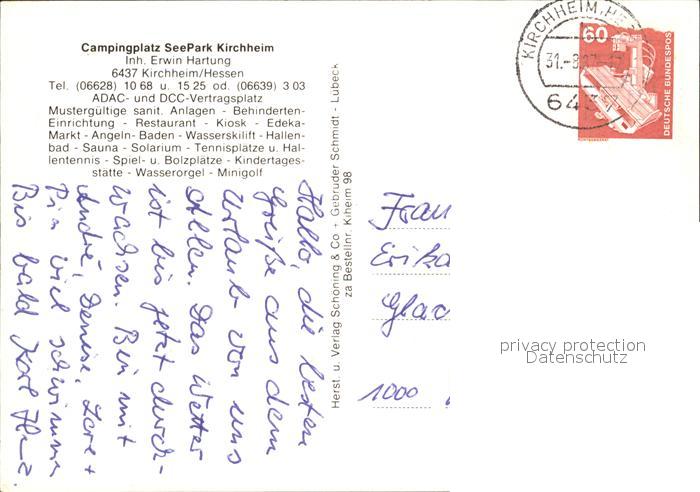 Campingplatz SeePark Kirchheim
Inh. Erwin Hartung
6437 Kirchheim/Hessen
Tel. (06628) 10 68 u. 15 25 od. (06639) 3 03
ADAC- und DCC-Vertragsplatz
Mustergültige sanit. Anlagen - Behinderten-
Einrichtung - Restaurant - Kiosk - Edeka-
Markt - Angeln- Baden - Wasserskilift - Hallen-
bad - Sauna - Solarium - Tennisplätze u. Hal-
lentennis - Spiel- u. Bolzplätze - Kindertages-
stätte - Wasserorgel - Minigolf
Hallo, die besten
Grüße aus dem
Urlaub von uns
Allen. Das Wetter
ist bis jetzt durch-
wachsen. Bin mit
André, Denise,
viel schwimmen
Bis bald Karl
Herst. u. Verlag Schöning & Co + Gebrüder Schmidt - Lübeck
za Bestellnr. Kiheim 98
KIRCHHEIM, HES
31.-8.
643
60
DEUTSCHE BUNDESPOS
Frau
Erika
Glac
1000
privacy protection
Datenschutz